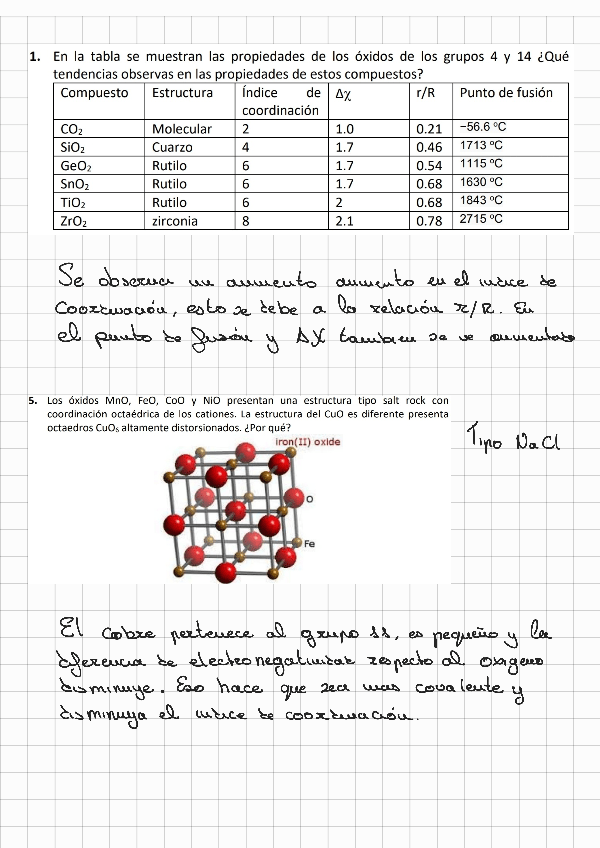 1. En la tabla se muestran las propiedades de los óxidos de los grupos 4 y 14 ¿Qué
tendencias observas en las propiedades de estos compuestos?
Compuesto Estructura Índice de coordinación Δχ r/R Punto de fusión
CO₂ Molecular 2 1.0 0.21 −56.6 ºC
SiO₂ Cuarzo 4 1.7 0.46 1713 ºC
GeO₂ Rutilo 6 1.7 0.54 1115 ºC
SnO₂ Rutilo 6 1.7 0.68 1630 ºC
TiO₂ Rutilo 6 2 0.68 1843 ºC
ZrO₂ zirconia 8 2.1 0.78 2715 ºC
Se observa un aumento aumento en el indice de
coordinación, esto se debe a la relación r/R. En
el punto de fusión y ΔX tambien se ve aumentado
5. Los óxidos MnO, FeO, CoO y NiO presentan una estructura tipo salt rock con
coordinación octaédrica de los cationes. La estructura del CuO es diferente presenta
octaedros CuO₆ altamente distorsionados. ¿Por qué?
Tipo NaCl
iron(II) oxide
O
Fe
El cobre pertenece al grupo 11, es pequeño y la
diferencia de electronegatividad respecto al oxigeno
disminuye. Eso hace que sea mas covalente y
disminuya el indice de coordinación.